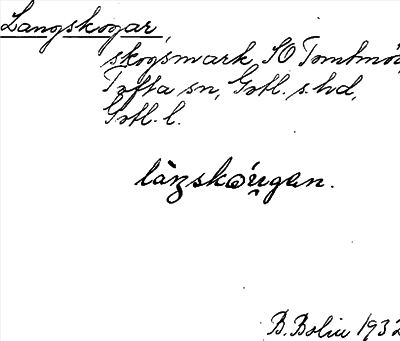 Langskogar,
skogsmark SO Tomtmö
Tofta sn, Gotl. s. hd,
Gotl. l.
làŋskóu̯gan.
B. Bolin 1932